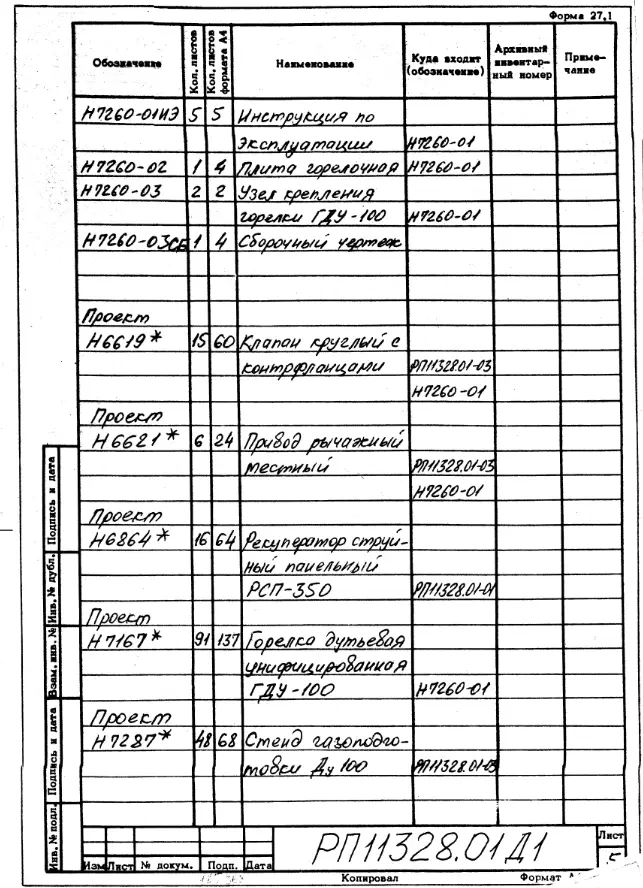 Форма 27,1
Обозначение Кол. листов Кол. листов формата А4 Наименование Куда входит (обозначение) Архивный инвентарный номер Примечание
Н7260-01ИЭ 5 5 Инструкция по
эксплуатации Н7260-01
Н7260-02 1 4 Плита горелочная Н7260-01
Н7260-03 2 2 Узел крепления
горелки ГДУ-100 Н7260-01
Н7260-03СБ 1 4 Сборочный чертеж
Проект
Н6619* 15 60 Клапан круглый с
контрфланцами РП11328.01-03
Н7260-01
Проект
Н6621* 6 24 Привод рычажный
местный РП11328.01-03
Н7260-01
Проект
Н6864* 16 64 Рекуператор струй-
ный панельный
РСП-350 РП11328.01-01
Проект
Н7167* 91 137 Горелка дутьевая
унифицированная
ГДУ-100 Н7260-01
Проект
Н7287* 48 68 Стенд газоподго-
товки Ду 100 РП11328.01-03
Инв. № подл. Подпись и дата Взам. инв. № Инв. № дубл. Подпись и дата
РП11328.01Д1
Лист
5
Изм Лист № докум. Подп. Дата
Копировал Формат